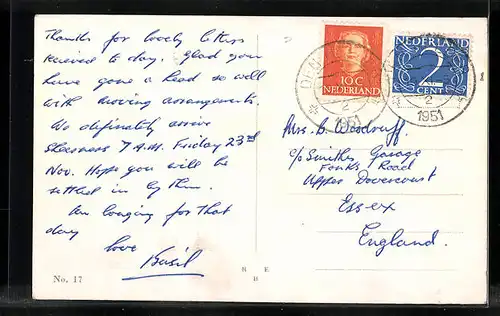 Thanks for lovely letters
received to day. Glad you
have gone a head so well
with moving arrangements.
We definately arrive
Sheerness 7 A.M. Friday 23rd
Nov. Hope you will be
settled in by then.
Am longing for that
day
love
Basil
No. 17
S E
B
10C
NEDERLAND
NEDERLAND
2
CENT
DEN
2
1951
2
1951
Mrs. B. Woodruff
c/o Smiths Garage
Fonks Road
Upper Dovercourt
Essex
England.